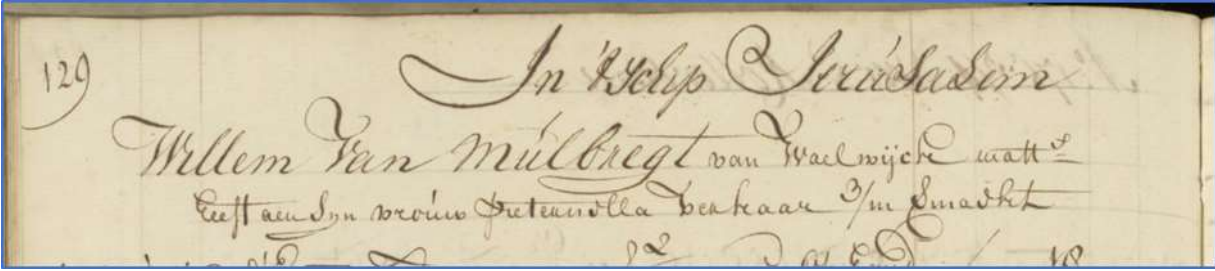 129
In 't Schip Jerúsalem
Willem Van Múlbregt van Waelwijck matt.s
heeft aen Syn vroúw Pieternella Verhaar 3/m Gemackt